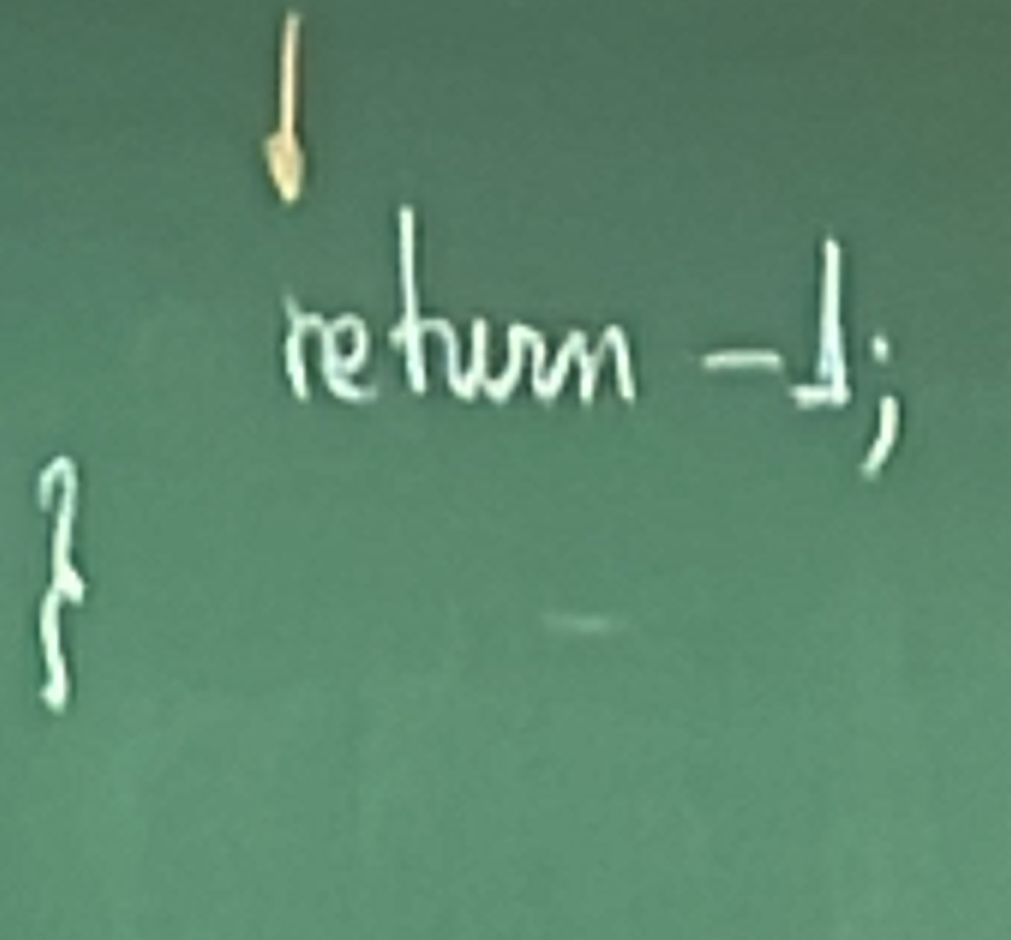 return -1;
}